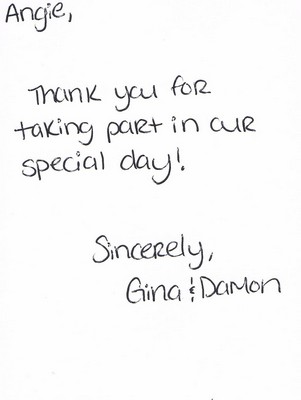 Angie,
Thank you for
taking part in our
special day!
Sincerely,
Gina & Damon